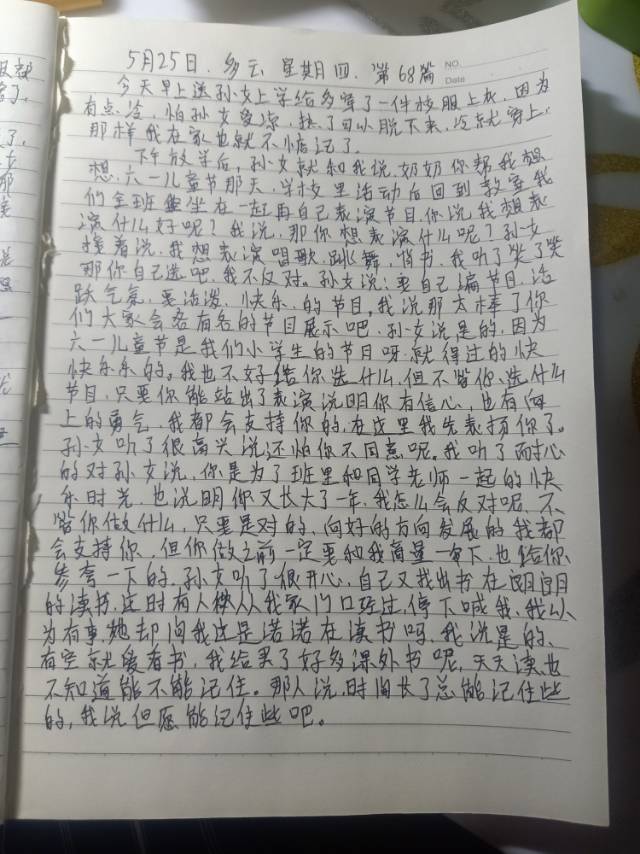 5月25日. 多云 星期四. 第68篇
NO.
Date
今天早上送孙女上学给多穿了一件校服上衣, 因为
有点冷, 怕孙女受凉, 热了可以脱下来, 冷就穿上,
那样我在家也就不惦记了.
下午放学后, 孙女就和我说, 奶奶你帮我想
想, 六一儿童节那天, 学校里活动后回到教室我
们全班坐在一起再自己表演节目, 你说我想表
演什么好呢? 我说, 那你想表演什么呢? 孙女
接着说, 我想表演唱歌, 跳舞, 背书, 我听了笑了笑
那你自己选吧, 我不反对。孙女说: 要自己编节目, 活
跃气氛, 要活泼, 快乐, 的节目, 我说那太棒了你
们大家会各有各的节目展示吧, 孙女说是的, 因为
六一儿童节是我们小学生的节日呀, 就得过的快
快乐乐的。我也不好给你选什么, 但不管你选什么
节目, 只要你能站出了表演说明你有信心, 也有向
上的勇气, 我都会支持你的, 在这里我先表扬你了。
孙女听了很高兴说还怕你不同意呢。我听了耐心
的对孙女说, 你是为了班里和同学老师一起的快
乐时光, 也说明你又长大了一年, 我怎么会反对呢, 不
管你做什么, 只要是对的, 向好的方向发展的我都
会支持你, 但你做之前一定要和我商量一下, 也给你
参考一下的. 孙女听了很开心, 自己又找出书在
的读书, 这时有人从我家门口路过, 停下喊我, 我以
为有事, 她却问我这是诺诺在读书吗, 我说是的,
有空就爱看书, 我给买了好多课外书呢, 天天读, 也
不知道能不能记住。那人说, 时间长了总能记住些
的, 我说但愿能记住些吧。